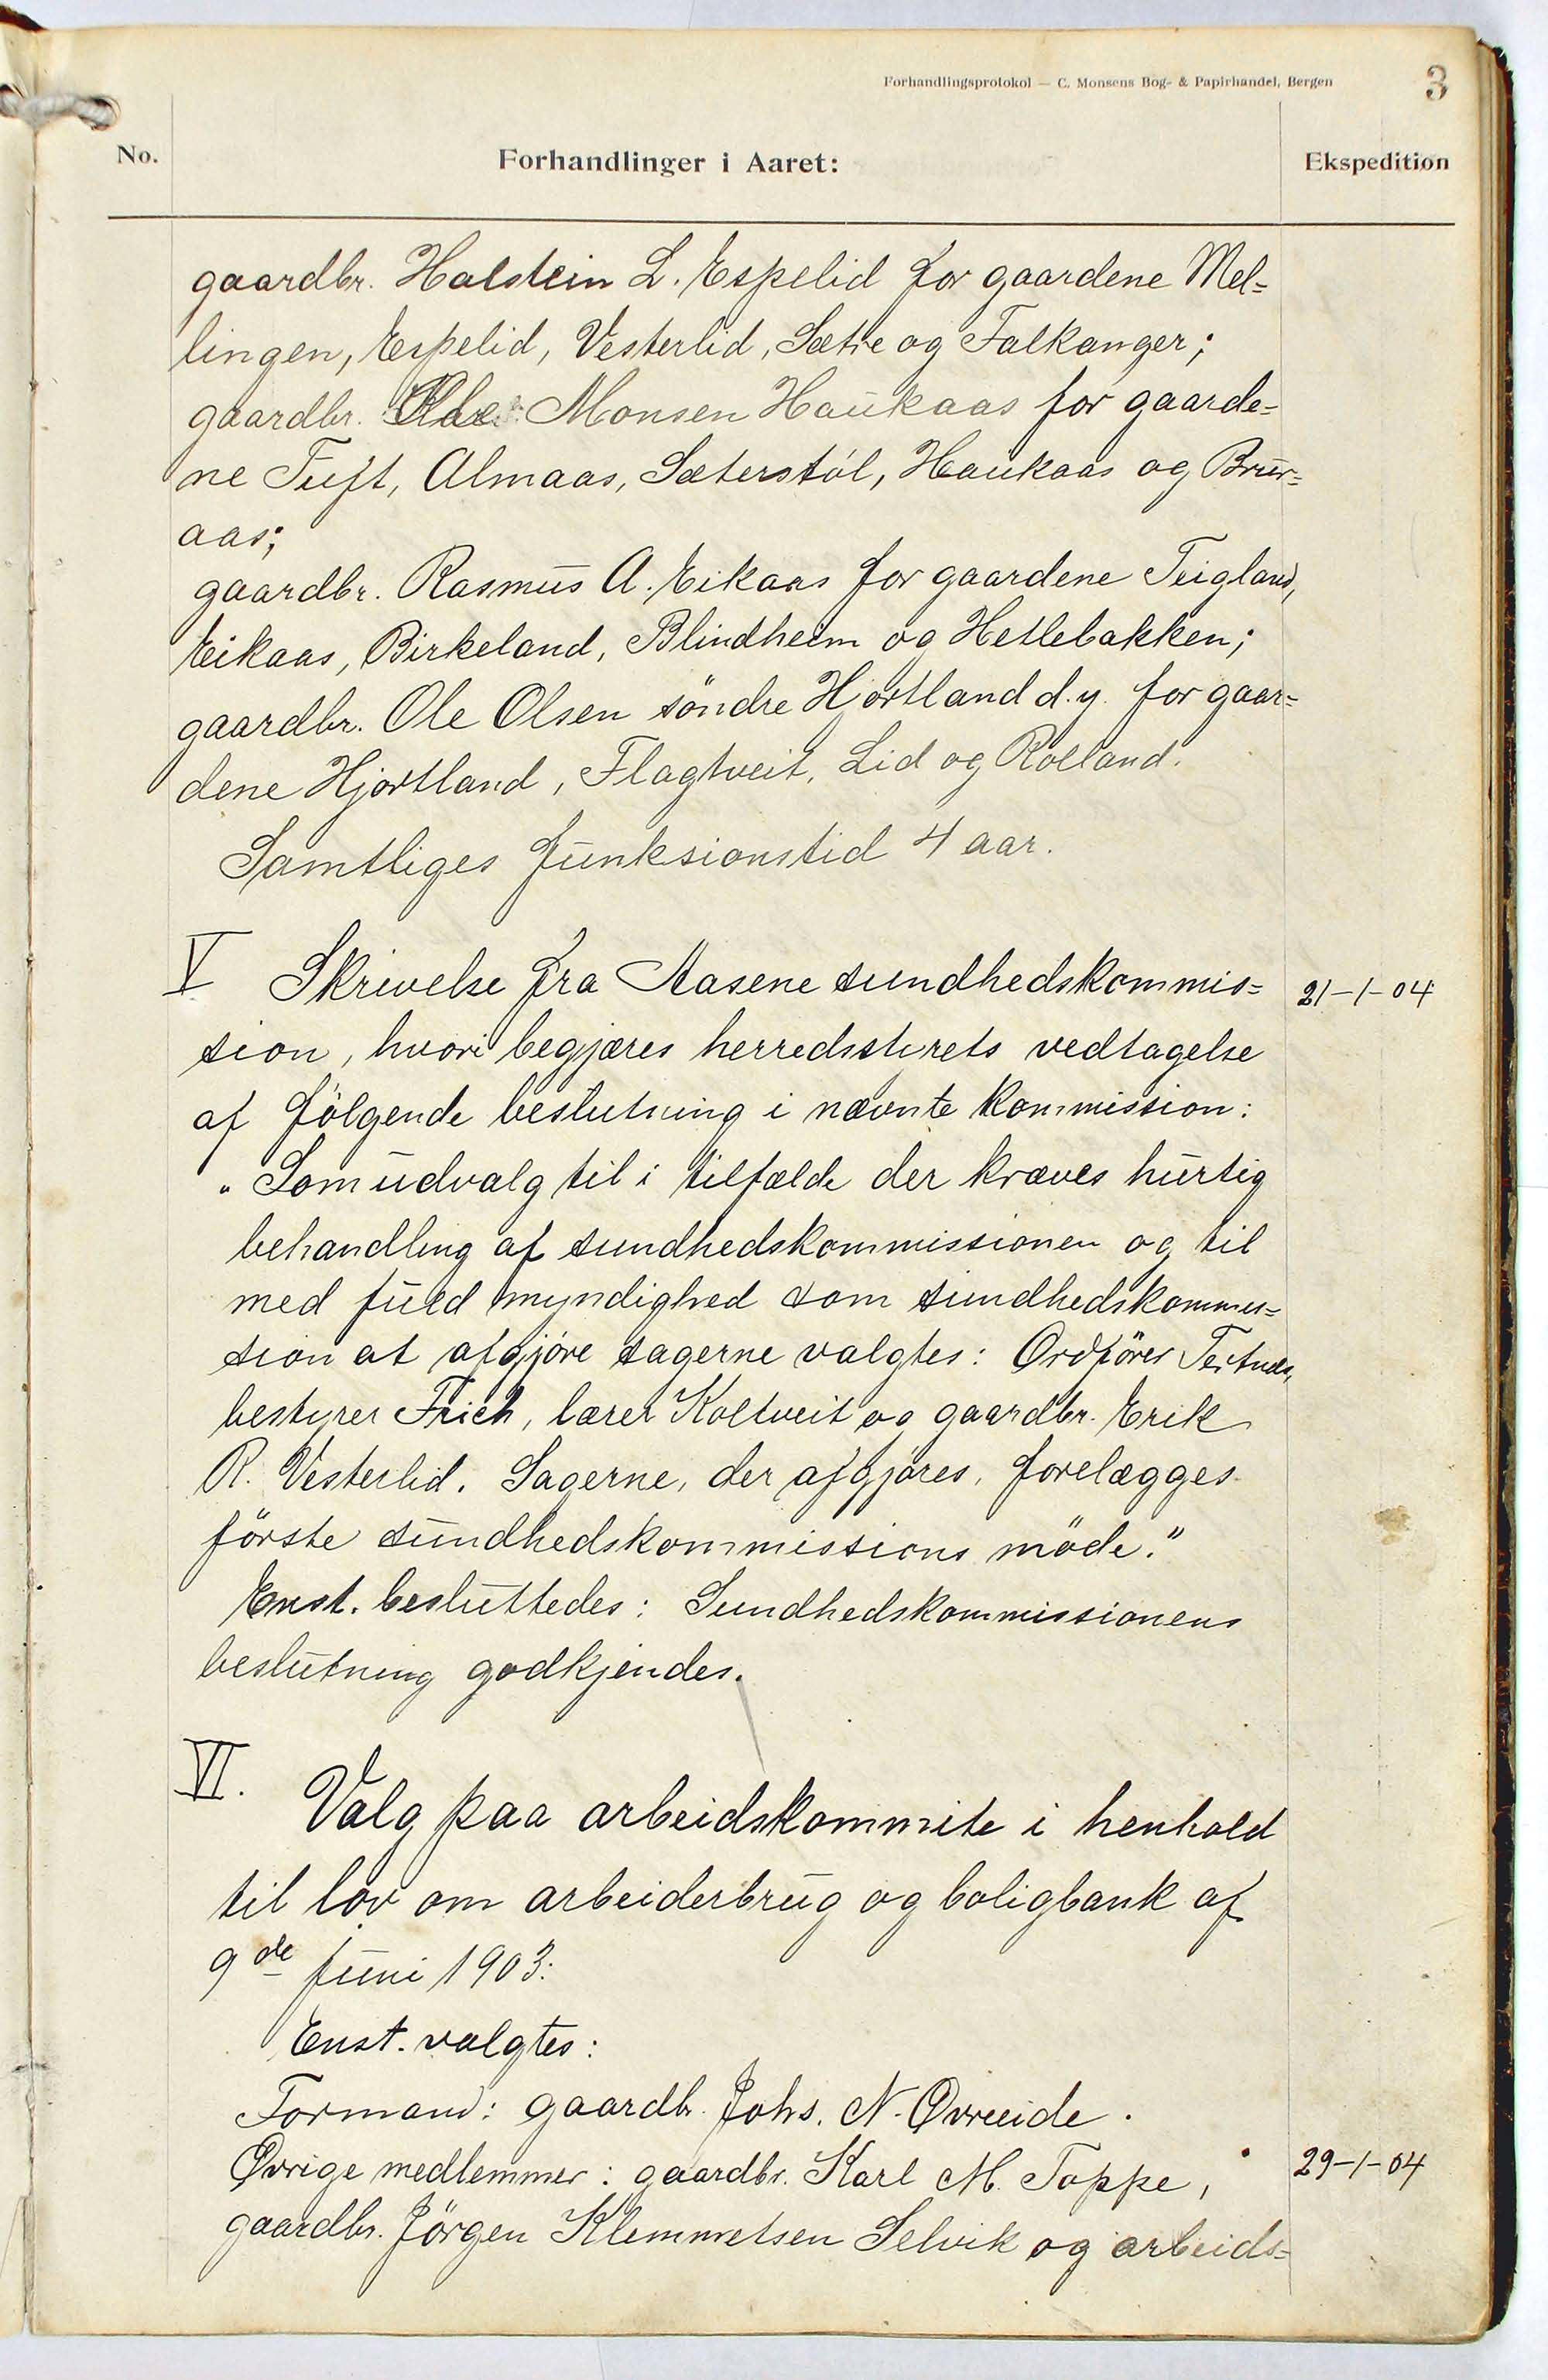 Forhandlingsprotokol — C. Monsens Bog- & Papirhandel, Bergen
3
No.
Forhandlinger i Aaret:
Ekspedition
gaardbr. Halstein L. Espelid for gaardene Mel=
lingen, Espelid, Vesterlid, Sætre og Falkanger;
gaardbr. Monsen Haukaas for gaarde=
ne Tuft, Almaas, Sæterstöl, Haukaas og Brur=
aas;
gaardbr. Rasmus A. Eikaas for gaardene Teigland,
Eikaas, Birkeland, Blindheim og Hetlebakken;
gaardbr. Ole Olsen söndre Hjortland d.y. for gaar=
dene Hjortland, Flagtveit, Lid og Rolland.
Samtliges funksionstid 4 aar.
V Skrivelse fra Aasene sundhedskommis= 21-1-04
sion, hvori begjæres herredsstyrets vedtagelse
af fölgende beslutning i nævnte kommission:
"Som udvalg til i tilfælde der kræves hurtig
behandling af sundhedskommissionen og til
med fuld myndighed som sundhedskommis=
sion at afgjöre sagerne valgtes: Ordförer Tertnes,
bestyrer Frich, lærer Koltveit og gaardbr. Erik
R. Vesterlid. Sagerne, der afgjöres, forelægges
förste sundhedskommissions möde."
Enst. besluttedes: Sundhedskommissionens
beslutning godkjendes.
VI. Valg paa arbeidskommite i henhold
til lov om arbeiderbrug og boligbank af
9de juni 1903:
Enst. valgtes:
Formand: gaardb. Johs. N. Øvreeide.
Øvrige medlemmer: gaardbr. Karl M. Toppe, 29-1-04
gaardbr. Jörgen Klemmetsen Selvik og arbeids=